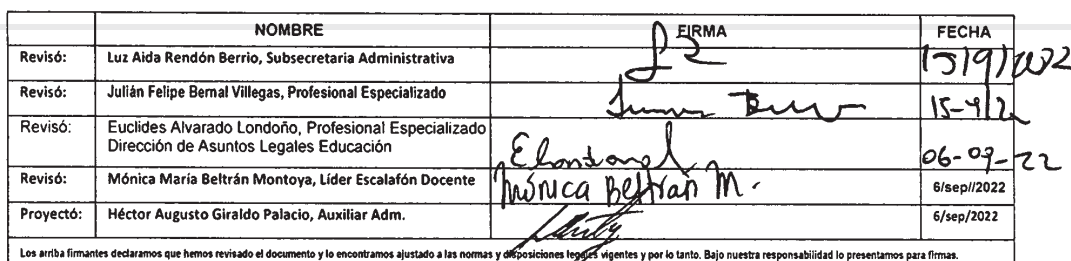 NOMBRE FIRMA FECHA
Revisó: Luz Aida Rendón Berrio, Subsecretaria Administrativa 15/9/2022
Revisó: Julián Felipe Bernal Villegas, Profesional Especializado
Revisó: Euclides Alvarado Londoño, Profesional Especializado
Dirección de Asuntos Legales Educación 06-09-22
Revisó: Mónica María Beltrán Montoya, Líder Escalafón Docente Mónica Beltrán M. 6/sep//2022
Proyectó: Héctor Augusto Giraldo Palacio, Auxiliar Adm. 6/sep/2022
Los arriba firmantes declaramos que hemos revisado el documento y lo encontramos ajustado a las normas y disposiciones legales vigentes y por lo tanto. Bajo nuestra responsabilidad lo presentamos para firmas.